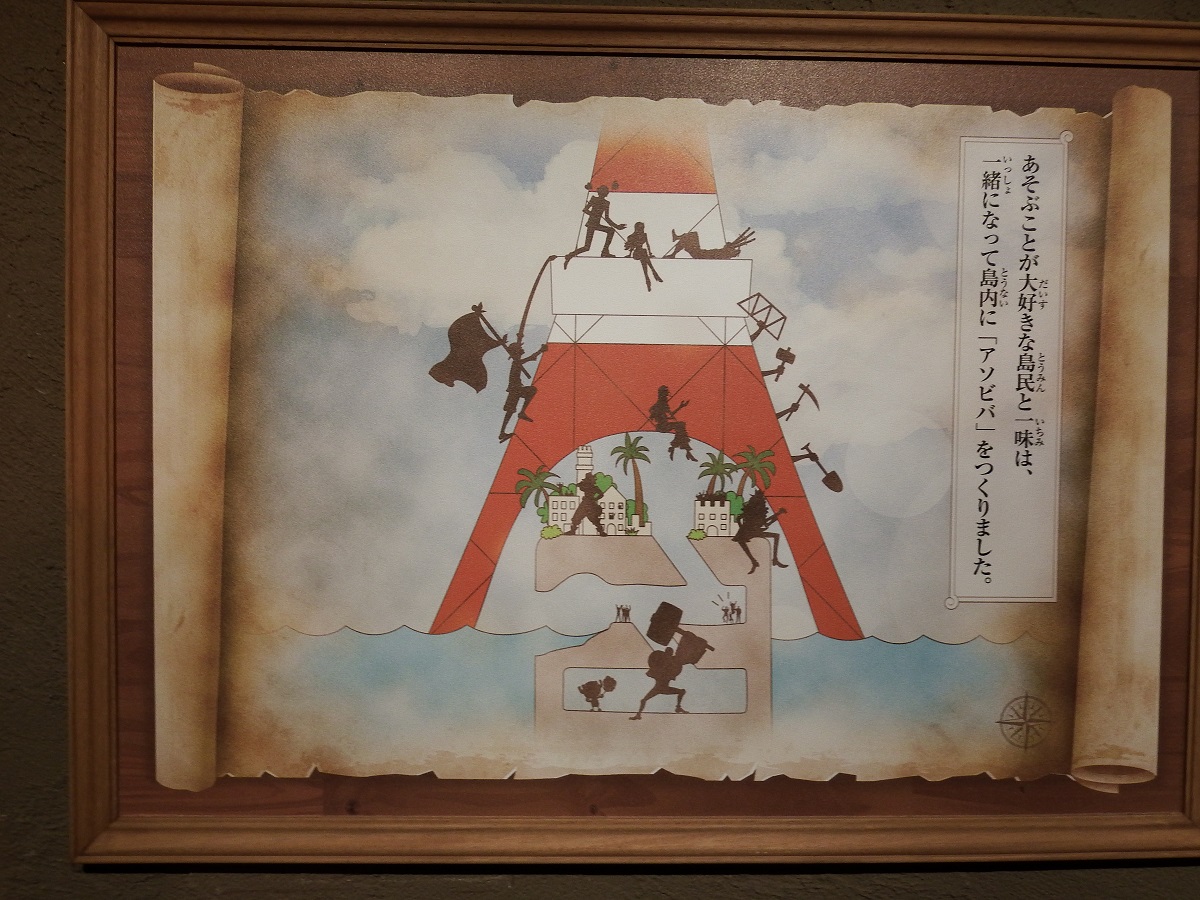 あそぶことが大好きな島民と一味は、
一緒になって島内に「アソビバ」をつくりました。